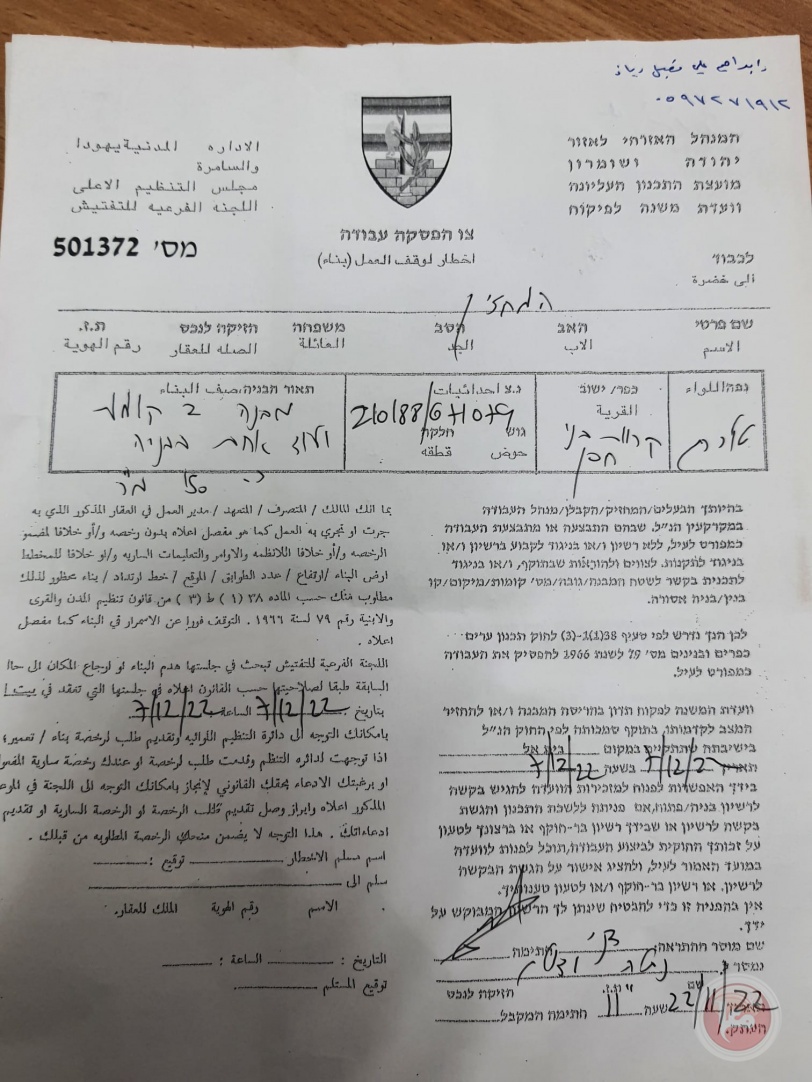 ابراهيم علي مقبل ريان
٠٥٩٧٢٧١٩١٢
המנהל האזרחי לאזור
יהודה ושומרון
מועצת התכנון העליונה
וועדת משנה לפיקוח
الاداره المدنية يهودا
والسامرة
مجلس التنظيم الاعلى
اللجنه الفرعيه للتفتيش
צו הפסקה עבודה
اخطار لوقف العمل (بناء)
מס' 501372
לכבוד
الى حضرة
המחזיק
שם פרטי האב הסב משפחה חזיקה לנכס ת.ז.
الاسم الاب الجد العائلة الصله للعقار رقم الهوية
נפה اللواء
כפר/ ישוב
القرية
קרוואת בני
חסן
נ.צ احداثيات
210188/671079
גוש חלקה
حوض قطقه
תאור הבניה؛ صيف البناء
מבנה 2 קומות
כ- 150 מ"ר
בהיותך הבעלים/המחזיק/הקבלן/מנהל העבודה
במקרקעין הנ"ל, שבהם התבצעה או מתבצעת העבודה
כמפורט לעיל, ללא רשיון ו/או בניגוד לקבוע ברשיון ו/או
בניגוד לתקנות, לצווים ולהוראות שבתוקף, ו/או בניגוד
לתכנית בקשר לשטח המבנה/גובה/מס' קומות/מיקום/קו
בנין/בניה אסורה.
לכן הנך נדרש לפי סעיף 38(1)ו-(3) לחוק תכנון ערים
כפרים ובנינים מס' 79 לשנת 1966 להפסיק את העבודה
כמפורט לעיל.
וועדת המשנה לפקוח תדון בהריסת המבנה ו/או להחזיר
המצב לקדמותו, בתוקף סמכותה לפי החוק הנ"ל
בישיבתה שתתקיים במקום בית אל
תאריך 7/12/22 בשעה 7/12/22
בידך האפשרות לפנות למזכירות הוועדה להגיש בקשה
לרשיון בניה/פתוח, אם פניתה ללשכת התכנון והגשת
בקשה לרשיון או שבידך רשיון בר-תוקף או ברצונך לטעון
על זכותך החוקית לביצוע העבודה, תוכל לפנות לוועדה
במועד האמור לעיל, ולהציג אישור על הגשת הבקשה
לרשיון, או רשיון בר-תוקף ו/או לטעון טענותיך.
אין בהפניה זו כדי להבטיח שינתן לך הרשיון המבוקש על
ידך.
שם מוסר ההתראה חתימה
נמסר ל
שם ת.ז. חזיקה לנכס
תאריך 22/11/22 שעה 11 חתימה המקבל
העתק.
بما انك المالك / المتصرف / المتعهد / مدير العمل في العقار المذكور الذي به
جرت او تجري به العمل كما هو مفصل اعلاه بدون رخصه و/أو خلافا لمضمو
الرخصه و/أو خلافا للانظمه والاوامر والتعليمات الساريه و/او خلافا للمخطط
ارض البناء /ارتفاع / عدد الطوابق / الموقع / خط ارتداد / بناء محظور لذلك
مطلوب منك حسب الماده ٣٨ ( ١ ) ط ( ٣ ) من قانون تنظيم المدن والقرى
والابنية رقم ٧٩ لسنة ١٩٦٦ . التوقف فورا عن الاسمرار في البناء كما مفصل
اعلاه .
اللجنه الفرعيه للتفتيش تبحث في جلستها هدم البناء او ارجاع المكان الى حالا
السابقة طبقا لصلاحيتها حسب القانون اعلاه في جلستها التي تعقد في بيت ا
بتاريخ 7/12/22 الساعة 7/12/22
بامكانك التوجه الى دائرة التنظيم اللوائيه وتقديم طلب لرخصة بناء / تعمير؛
اذا توجهت لدائره التنظم وقدمت طلب لرخصة او عندك رخصة سارية المفعو
او برغبتك الادعاء بحقك القانوني لإنجاز بامكانك التوجه الى اللجنة في الموع
المذكور اعلاه وابراز وصل تقديم طلب الرخصة او الرخصة السارية او تقديم
ادعاءاتك . هذا التوجه لا يضمن منحك الرخصة المطلوبه من قبلك .
اسم مسلم الاخطار توقيع :
سلم الى
الاسم رقم الهوية المالك للعقار.
التاريخ : الساعة :
توقيع المستلم :